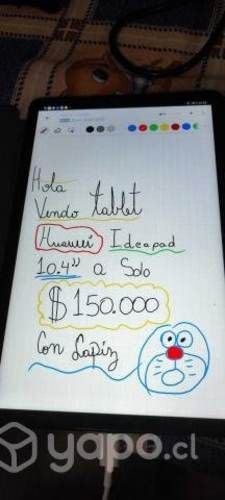 Hola
Vendo tablet
Huawei Ideapad
10.4" a Solo
$ 150.000
Con Lapiz
yapo.cl